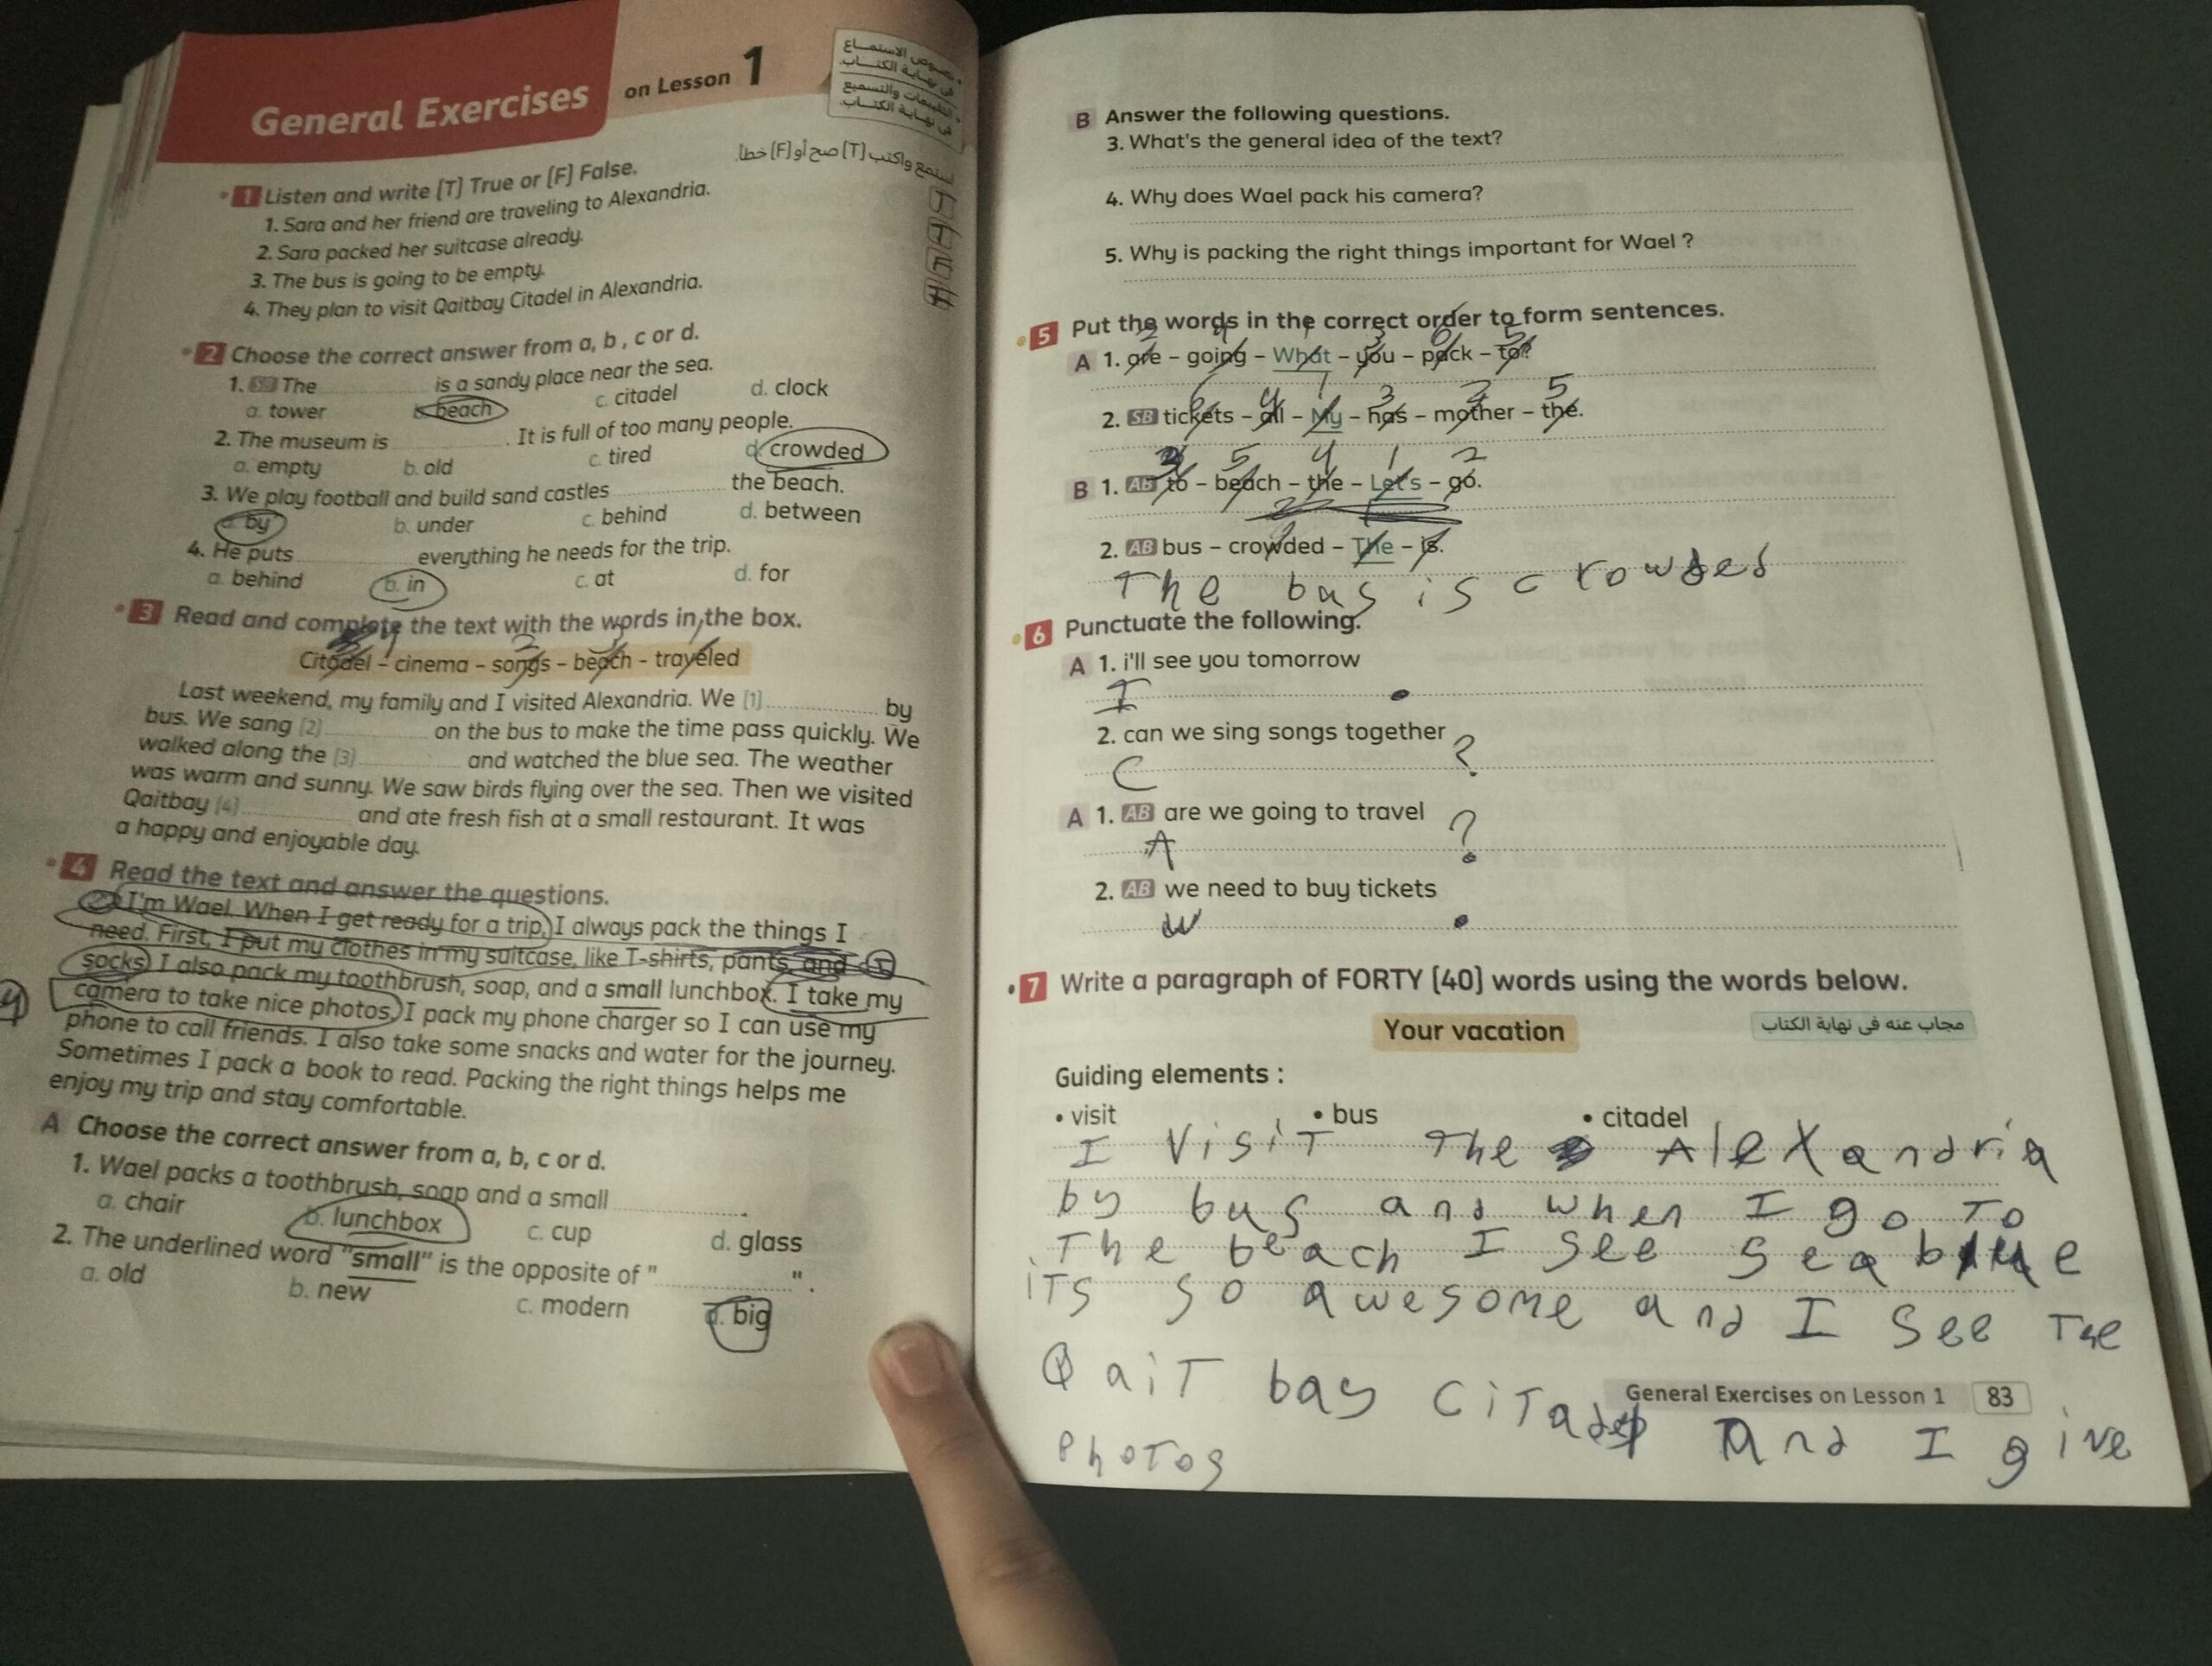 General Exercises on Lesson 1
نصوص الاستماع
فى نهاية الكتـــاب.
التقييمات والتسميع
فى نهاية الكتـــاب
استمع واكتب (T) صح أو (F) خطأ.
1 Listen and write (T) True or (F) False.
1. Sara and her friend are traveling to Alexandria.
2. Sara packed her suitcase already.
3. The bus is going to be empty.
4. They plan to visit Qaitbay Citadel in Alexandria.
2 Choose the correct answer from a, b , c or d.
1. SB The is a sandy place near the sea.
a. tower beach c. citadel d. clock
2. The museum is . It is full of too many people.
a. empty b. old c. tired d. crowded
3. We play football and build sand castles the beach.
a. by b. under c. behind d. between
4. He puts everything he needs for the trip.
a. behind b. in c. at d. for
3 Read and complete the text with the words in the box.
4 2 3 1
Citadel - cinema - songs - beach - traveled
Last weekend, my family and I visited Alexandria. We (1) by
bus. We sang (2) on the bus to make the time pass quickly. We
walked along the (3) and watched the blue sea. The weather
was warm and sunny. We saw birds flying over the sea. Then we visited
Qaitbay (4) and ate fresh fish at a small restaurant. It was
a happy and enjoyable day.
4 Read the text and answer the questions.
I'm Wael. When I get ready for a trip, I always pack the things I
need. First, I put my clothes in my suitcase, like T-shirts, pants, and
socks. I also pack my toothbrush, soap, and a small lunchbox. I take my
4 camera to take nice photos. I pack my phone charger so I can use my
phone to call friends. I also take some snacks and water for the journey.
Sometimes I pack a book to read. Packing the right things helps me
enjoy my trip and stay comfortable.
A Choose the correct answer from a, b, c or d.
1. Wael packs a toothbrush, soap and a small .
a. chair b. lunchbox c. cup d. glass
2. The underlined word "small" is the opposite of " ".
a. old b. new c. modern d. big
B Answer the following questions.
3. What's the general idea of the text?
4. Why does Wael pack his camera?
5. Why is packing the right things important for Wael ?
5 Put the words in the correct order to form sentences.
2 4 1 3 6 5
A 1. are - going - What - you - pack - to?
6 4 1 3 2 5
2. SB tickets - all - My - has - mother - the.
3 5 4 1 2
B 1. AB to - beach - the - Let's - go.
2. AB bus - crowded - The - is.
The bus is crowded
6 Punctuate the following.
A 1. i'll see you tomorrow
I .
2. can we sing songs together ?
C
A 1. AB are we going to travel ?
A
2. AB we need to buy tickets
W .
7 Write a paragraph of FORTY (40) words using the words below.
Your vacation
مجاب عنه فى نهاية الكتاب
Guiding elements :
• visit • bus • citadel
I visit the Alexandria
by bus and when I go to
the beach I see sea blue
its so awesome and I see the
Qait bay Citadel and I give
Photos
General Exercises on Lesson 1 83